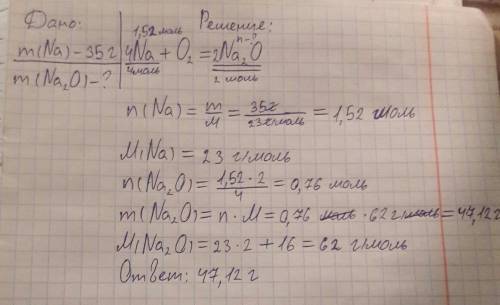 Дано:
Решение:
1,52 моль
n-?
m(Na)-35г
4Na + O₂ = 2Na₂O
4моль
2 моль
m(Na₂O)-?
n(Na) = m/M = 35г/23г/моль = 1,52 моль
M(Na) = 23 г/моль
n(Na₂O) = 1,52·2/4 = 0,76 моль
m(Na₂O) = n·M = 0,76 моль · 62 г/моль = 47,12г
M(Na₂O) = 23·2 + 16 = 62 г/моль
Ответ: 47,12 г